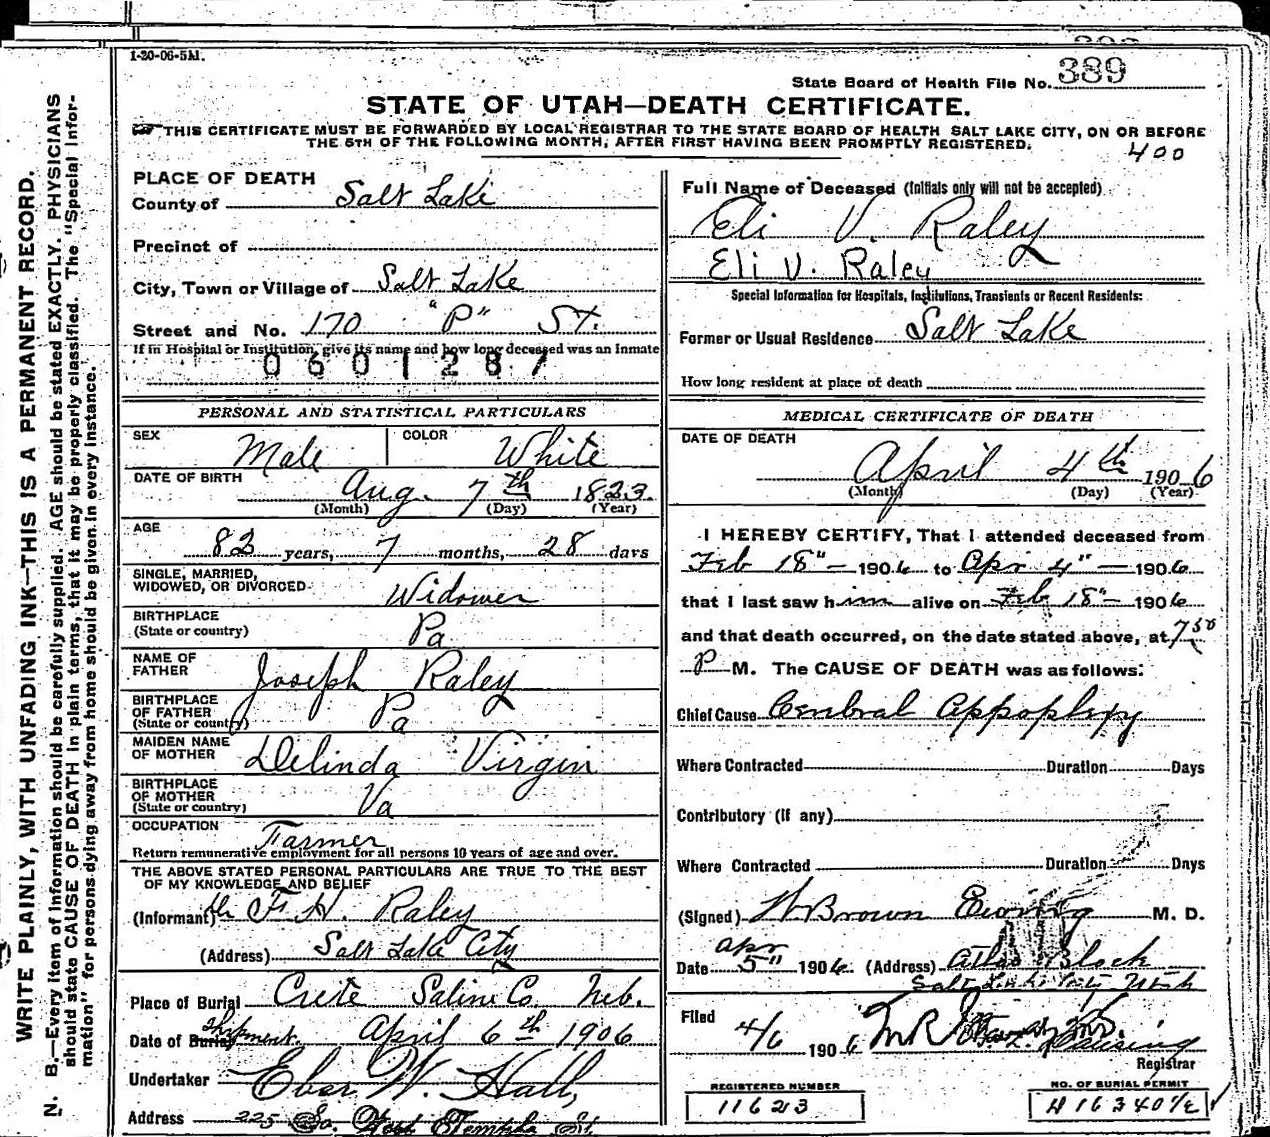 1-20-06-5M.
State Board of Health File No. 389
STATE OF UTAH—DEATH CERTIFICATE.
THIS CERTIFICATE MUST BE FORWARDED BY LOCAL REGISTRAR TO THE STATE BOARD OF HEALTH SALT LAKE CITY, ON OR BEFORE
THE 5TH OF THE FOLLOWING MONTH, AFTER FIRST HAVING BEEN PROMPTLY REGISTERED.
400
WRITE PLAINLY, WITH UNFADING INK—THIS IS A PERMANENT RECORD.
N. B.—Every item of information should be carefully supplied. AGE should be stated EXACTLY. PHYSICIANS
should state CAUSE OF DEATH in plain terms, that it may be properly classified. The "Special Infor-
mation" for persons dying away from home should be given in every instance.
PLACE OF DEATH
County of Salt Lake
Precinct of
City, Town or Village of Salt Lake
Street and No. 170 "P" St.
If in Hospital or Institution, give its name and how long deceased was an Inmate
0601287
PERSONAL AND STATISTICAL PARTICULARS
SEX Male COLOR White
DATE OF BIRTH Aug. 7th 1823.
(Month) (Day) (Year)
AGE 82 years, 7 months, 28 days
SINGLE, MARRIED,
WIDOWED, OR DIVORCED Widower
BIRTHPLACE
(State or country) Pa
NAME OF
FATHER Joseph Raley
BIRTHPLACE
OF FATHER
(State or country) Pa
MAIDEN NAME
OF MOTHER Delinda Virgin
BIRTHPLACE
OF MOTHER
(State or country) Va
OCCUPATION Farmer
Return remunerative employment for all persons 10 years of age and over.
THE ABOVE STATED PERSONAL PARTICULARS ARE TRUE TO THE BEST
OF MY KNOWLEDGE AND BELIEF
(Informant) F. H. Raley
(Address) Salt Lake City
Place of Burial Crete Saline Co. Neb.
Date of Burial Shipment. April 6th 1906
Undertaker Eber W. Hall,
Address 225 So. West Temple St.
Full Name of Deceased (Initials only will not be accepted)
Eli V. Raley
Eli V. Raley
Special Information for Hospitals, Institutions, Transients or Recent Residents:
Former or Usual Residence Salt Lake
How long resident at place of death
MEDICAL CERTIFICATE OF DEATH
DATE OF DEATH
April 4th 1906
(Month) (Day) (Year)
I HEREBY CERTIFY, That I attended deceased from
Feb 18" — 1906 to Apr 4" — 1906
that I last saw him alive on Feb 18" — 1906
and that death occurred, on the date stated above, at 7 50
P M. The CAUSE OF DEATH was as follows:
Chief Cause Cerebral Appoplexy
Where Contracted Duration Days
Contributory (if any)
Where Contracted Duration Days
(Signed) W Brown Ewing M. D.
Date Apr 5" 1906. (Address) Atlas Block
Salt Lake City Utah
Filed 4/6 1906
Registrar
REGISTERED NUMBER
11623
NO. OF BURIAL PERMIT
H 16340 1/2